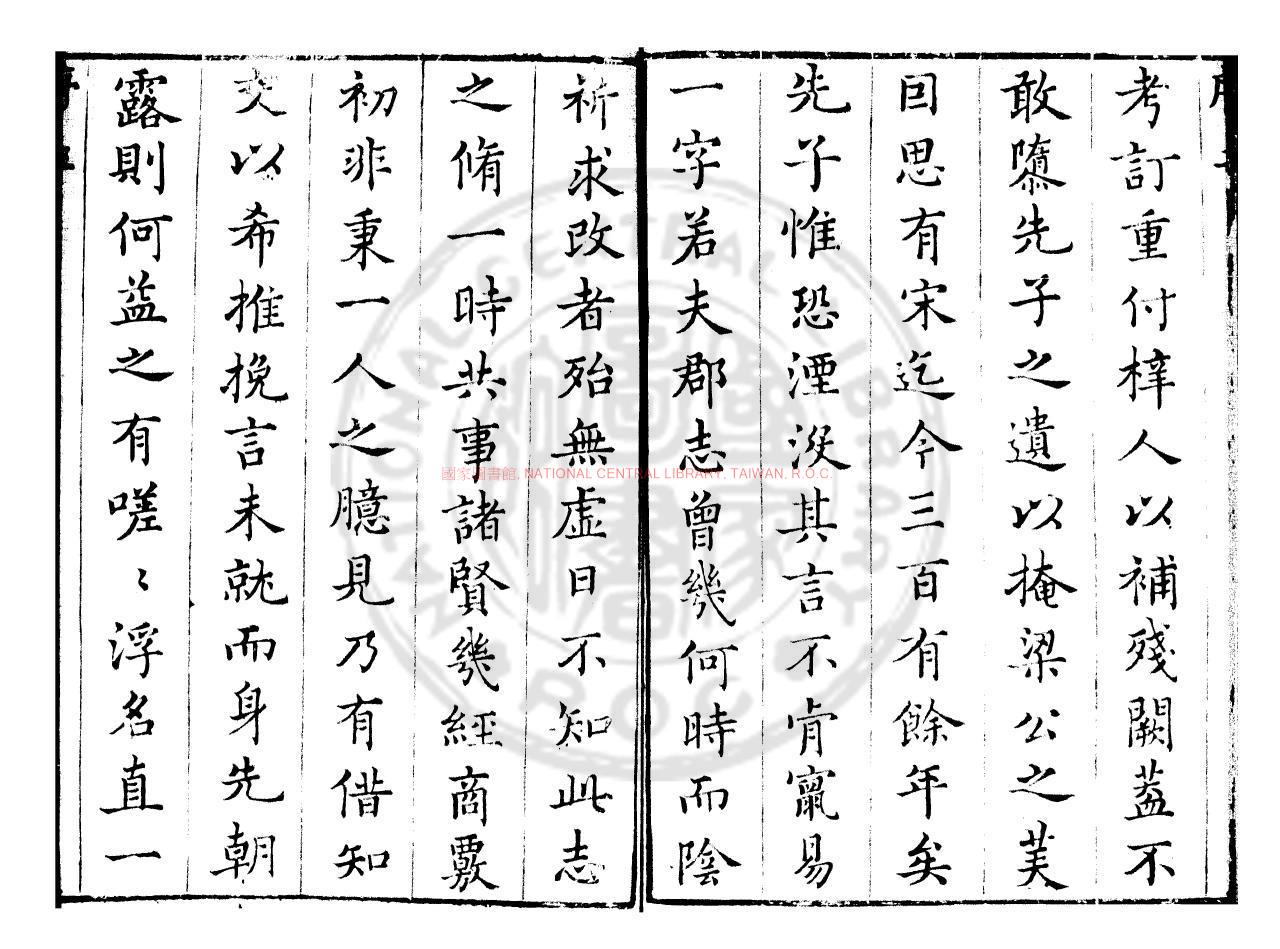 考訂重付梓人以補殘闕葢不
敢隳先子之遺以掩梁公之美
囙思有宋迄今三百有餘年矣
先子惟恐湮沒其言不肯竄易
一字若夫郡志曾幾何時而陰
祈求改者殆無虛日不知此志
之脩一時共事諸賢幾經商覈
初非秉一人之臆見乃有借知
交以希推挽言未就而身先朝
露則何益之有嗟〻浮名直一
國家圖書館, NATIONAL CENTRAL LIBRARY, TAIWAN, R.O.C.